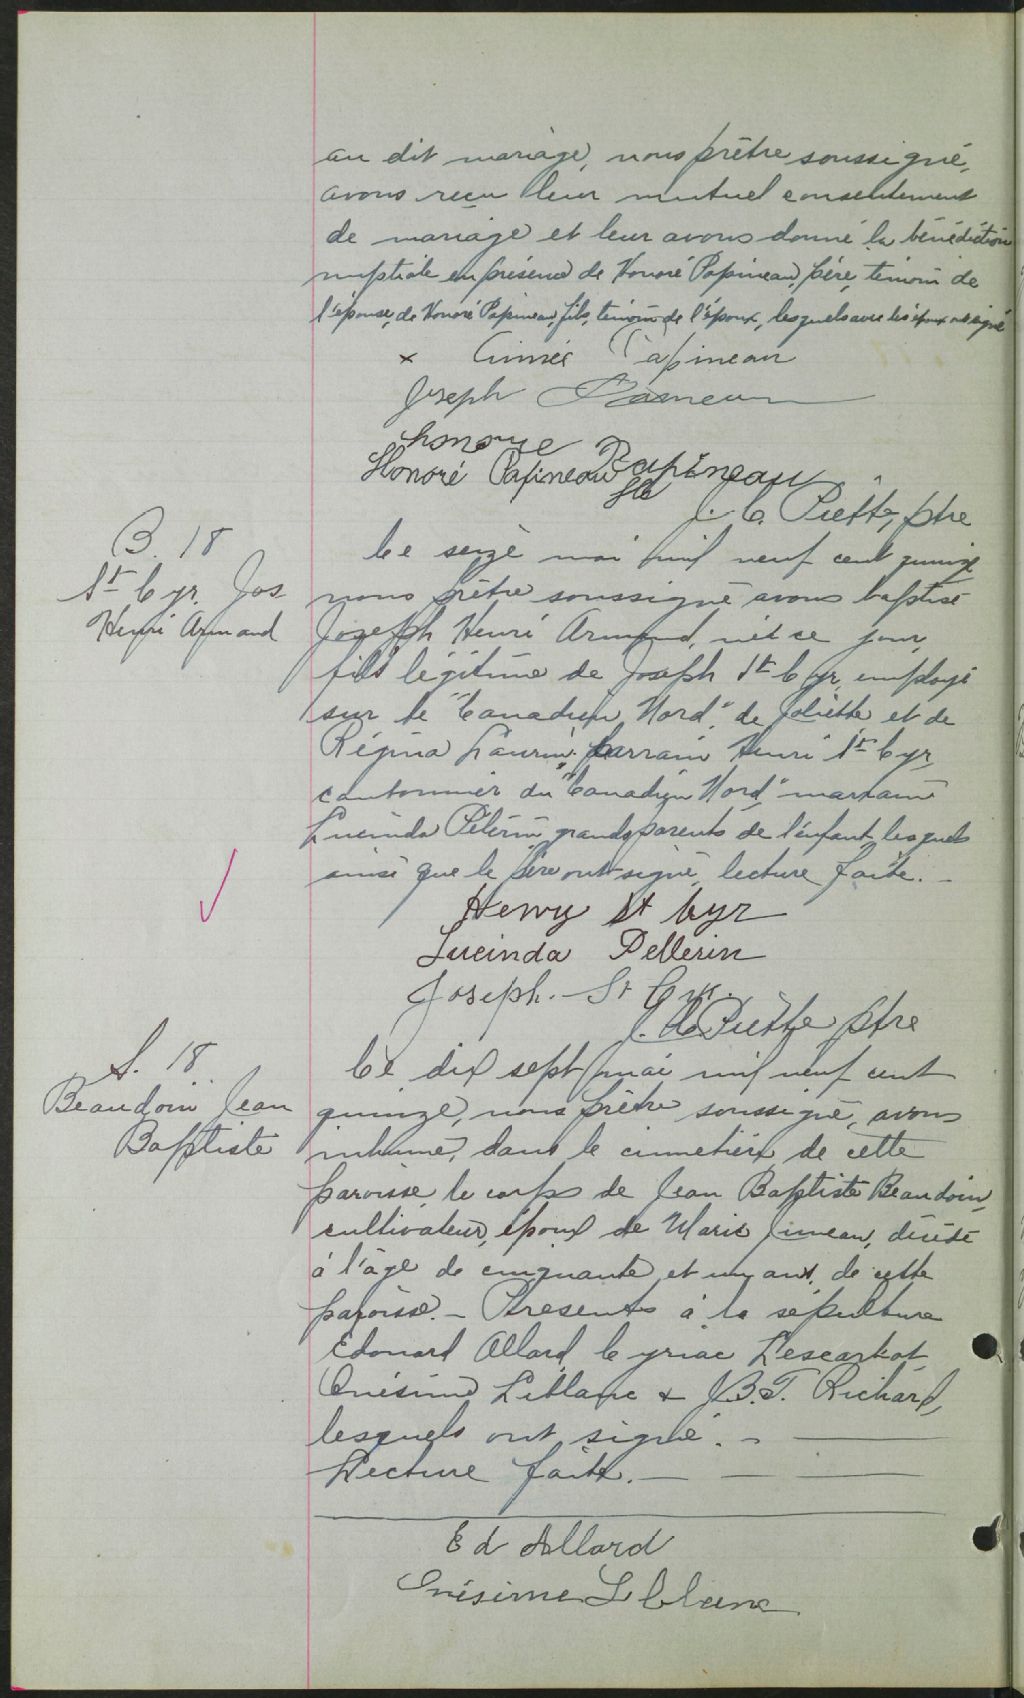 au dit mariage, nous prêtre soussigné,
avons reçu leur mutuel consentement
de mariage et leur avons donné la bénédiction
nuptiale en présence de Honoré Papineau, père, témoin de
l'épouse, de Honoré Papineau, fils, témoin de l'époux, lesquels avec les époux ont signé
x Aimée Papineau
Joseph
honore Papineau
Honoré Papineau fils
J. C. Piette, ptre
B. 18
St Cyr. Jos
Henri Armand
Ce seize mai mil neuf cent quinze
nous prêtre soussigné avons baptisé
Joseph Henri Armand, né ce jour,
fils légitime de Joseph St Cyr, employé
sur le "Canadien Nord", de Joliette et de
Régina Laurin, parrain Henri St Cyr,
cantonnier du "Canadien Nord," marraine
Lucinda Pélerin grands parents de l'enfant, lesquels
ainsi que le père ont signé, lecture faite. _
Henry St Cyr
Lucinda Pellerin
Joseph. St Cyr.
J. C. Piette ptre
S. 18
Beaudoin Jean
Baptiste
Ce dix sept mai mil neuf cent
quinze, nous prêtre soussigné, avons
inhumé, dans le cimetière de cette
paroisse le corps de Jean Baptiste Beaudoin,
cultivateur, époux de Marie Juneau, décédé
à l'âge de cinquante et un ans, de cette
paroisse. - Présents à la sépulture
Edouard Allard, Cyriac Lescarbot,
Onésime Leblanc & J.B.T. Richard,
lesquels ont signé. -
Lecture faite. -
Ed Allard
Onésime Leblanc